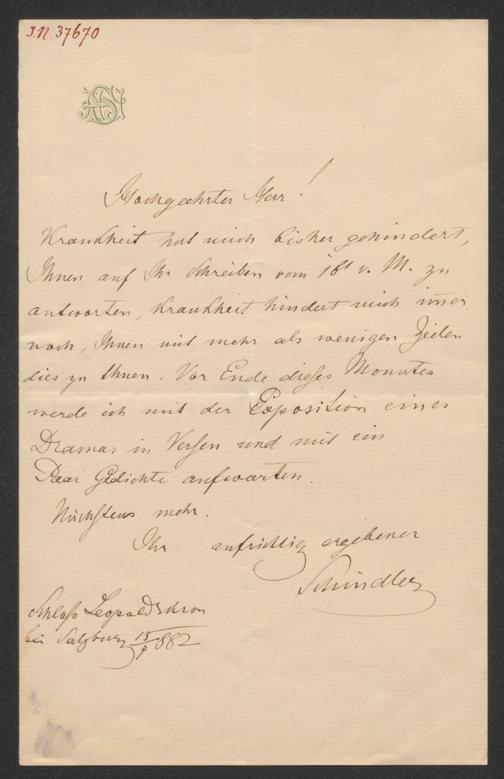 J.N. 37670
AS
Hochgeehrter Herr!
Krankheit hat mich bisher gehindert,
Ihnen auf Ihr Schreiben vom 18t v. M. zu
antworten, Krankheit hindert mich im̄er
noch, Ihnen mit mehr als wenigen Zeilen
dies zu thuen. Vor Ende dieses Monates
werde ich mit der Exposition eines
Dramas in Versen und mit ein
Paar Gedichte aufwarten.
Nächstens mehr.
Ihr aufrichtig ergebener
Schindler
Schloß Leopoldskron
bei Salzburg 15/9 882